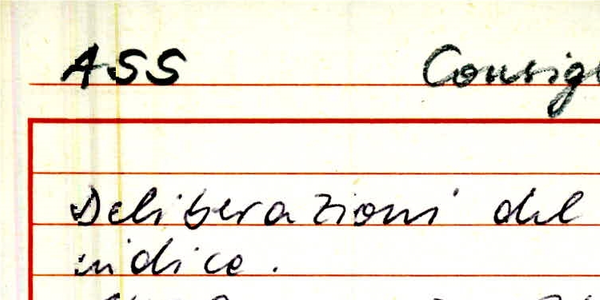 ASS Consigl
Deliberazioni del
indice.